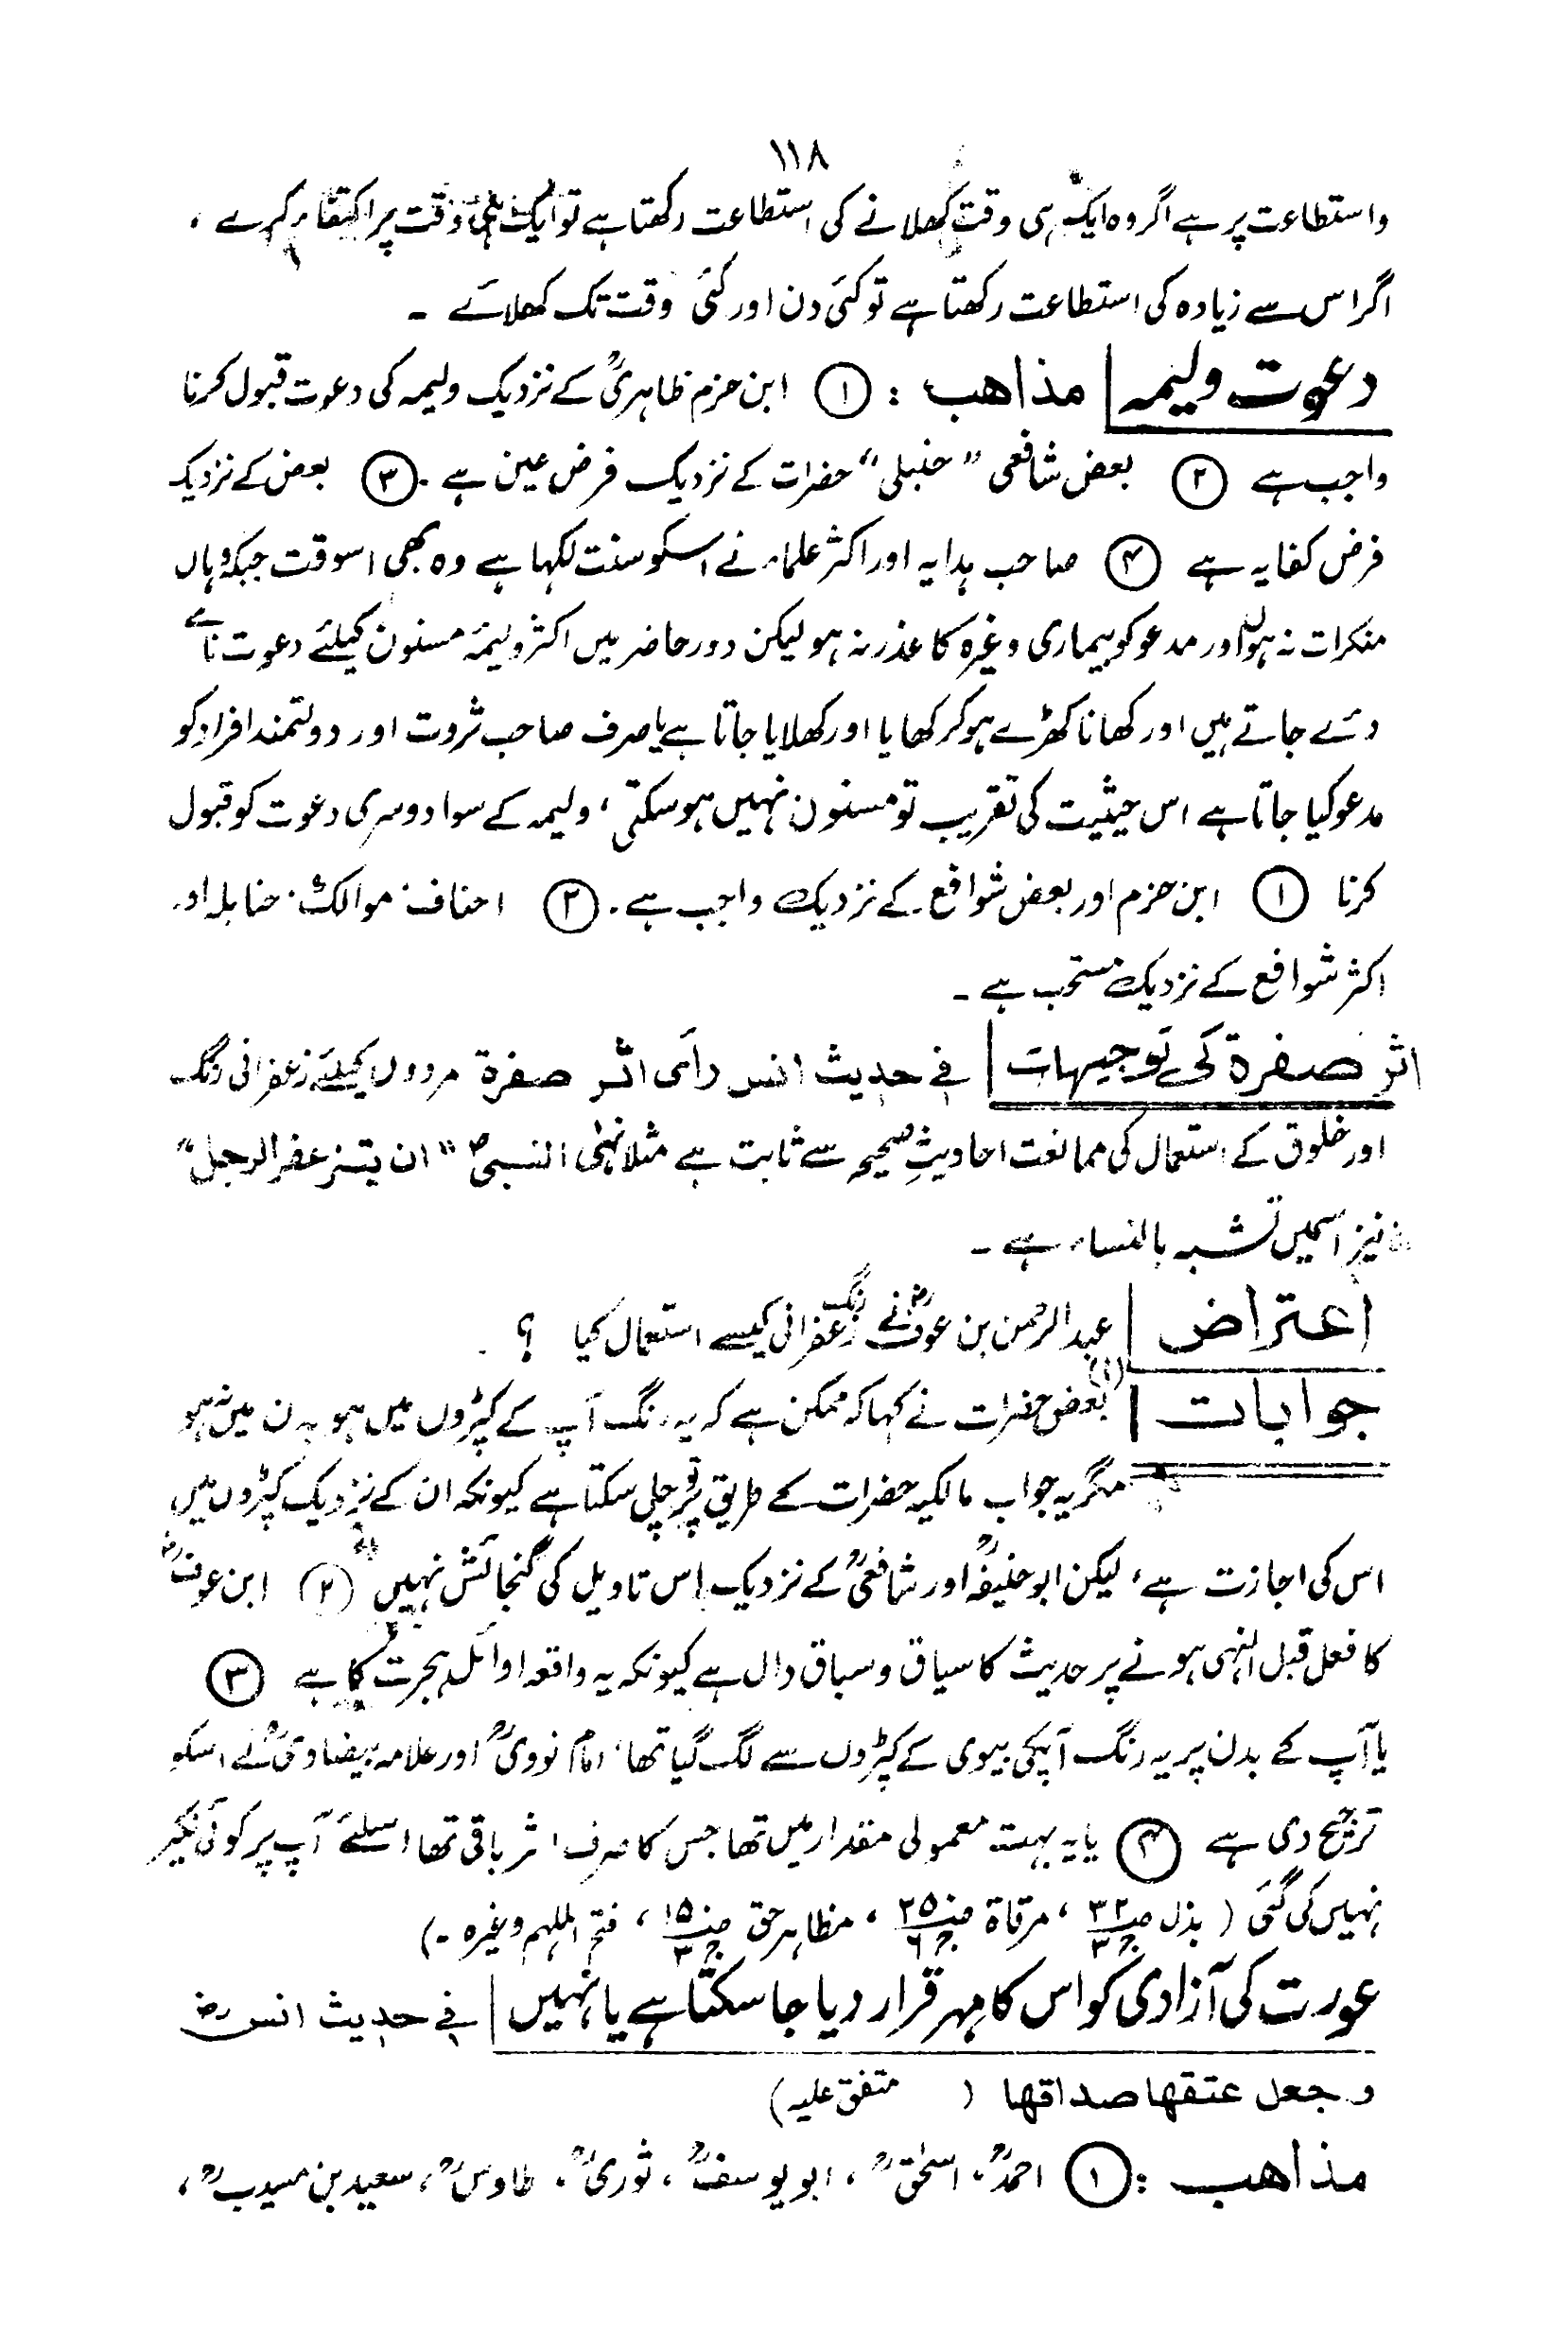 ۱۱۸
واستطاعت پر ہے اگر وہ ایک ہی وقت کھلانے کی استطاعت رکھتا ہے تو ایک ہی وقت پر اکتفاء کرے ،
اگر اس سے زیادہ کی استطاعت رکھتا ہے تو کئی دن اور کئی وقت تک کھلائے ۔
دعوت ولیمہ | مذاھب : ① ابن حزم ظاہریؒ کے نزدیک ولیمہ کی دعوت قبول کرنا
واجب ہے ② بعض شافعی " حنبلی " حضرات کے نزدیک فرض عین ہے ۔ ③ بعض کے نزدیک
فرض کفایہ ہے ④ صاحب ہدایہ اور اکثر علماء نے اسکو سنت لکہا ہے وہ بھی اسوقت جبکہ وہاں
منکرات نہ ہوں اور مدعو کو بیماری وغیرہ کا عذر نہ ہو لیکن دور حاضر میں اکثر ولیمۂ مسنون کیلئے دعوت نامے
دئے جاتے ہیں اور کھانا کھڑے ہو کر کھایا اور کھلایا جاتا ہے یا صرف صاحب ثروت اور دولتمند افراد کو
مدعو کیا جاتا ہے اس حیثیت کی تقریب تو مسنون نہیں ہو سکتی ، ولیمہ کے سوا دوسری دعوت کو قبول
کرنا ① ابن حزم اور بعض شوافع کے نزدیک واجب ہے ۔ ② احناف ، موالک ، حنابلہ اور
اکثر شوافع کے نزدیک مستحب ہے ۔
اثر صفرۃ کی توجیہات | فی حدیث انس رأی اثر صفرة مردوں کیلئے زعفرانی رنگ
اور خلوق کے استعمال کی ممانعت احادیثِ صحیحہ سے ثابت ہے مثلا نہی النبیؐ " ان یتزعفر الرجل "
نیز اسمیں تشبہ بالنساء ہے ۔
اعتراض | عبد الرحمن بن عوفؓ نے زعفرانی رنگ کیسے استعمال کیا ؟
جوابات | (۱) بعض حضرات نے کہا کہ ممکن ہے کہ یہ رنگ آپ کے کپڑوں میں ہو بدن میں نہ ہو
مگر یہ جواب مالکیہ حضرات کے طریق پر تو چل سکتا ہے کیونکہ ان کے نزدیک کپڑوں میں
اس کی اجازت ہے ، لیکن ابو حنیفہؒ اور شافعیؒ کے نزدیک اس تاویل کی گنجائش نہیں ② ابن عوفؓ
کا فعل قبل النہی ہونے پر حدیث کا سیاق وسباق دال ہے کیونکہ یہ واقعہ اوائل ہجرت کا ہے ③
یا آپ کے بدن پر یہ رنگ آپکی بیوی کے کپڑوں سے لگ گیا تھا ، امام نوویؒ اور علامہ بیضاویؒ نے اسکو
ترجیح دی ہے ④ یا یہ بہت معمولی مقدار میں تھا جس کا صرف اثر باقی تھا اسلئے آپ پر کوئی نکیر
نہیں کی گئی ( بذل ص ۳۲ ج ۳ ، مرقاۃ ص ۲۵ ج ۶ ، مظاہر حق ص ۱۵ ج ۳ ، فتح الملہم وغیرہ ۔)
عورت کی آزادی کو اس کا مہر قرار دیا جا سکتا ہے یا نہیں | فی حدیث انسؓ
وجعل عتقھا صداقھا ( متفق علیہ )
مذاھب : ① احمدؒ ، اسحٰقؒ ، ابو یوسفؒ ، ثوریؒ ، طاوسؒ ، سعید بن مسیبؒ ،